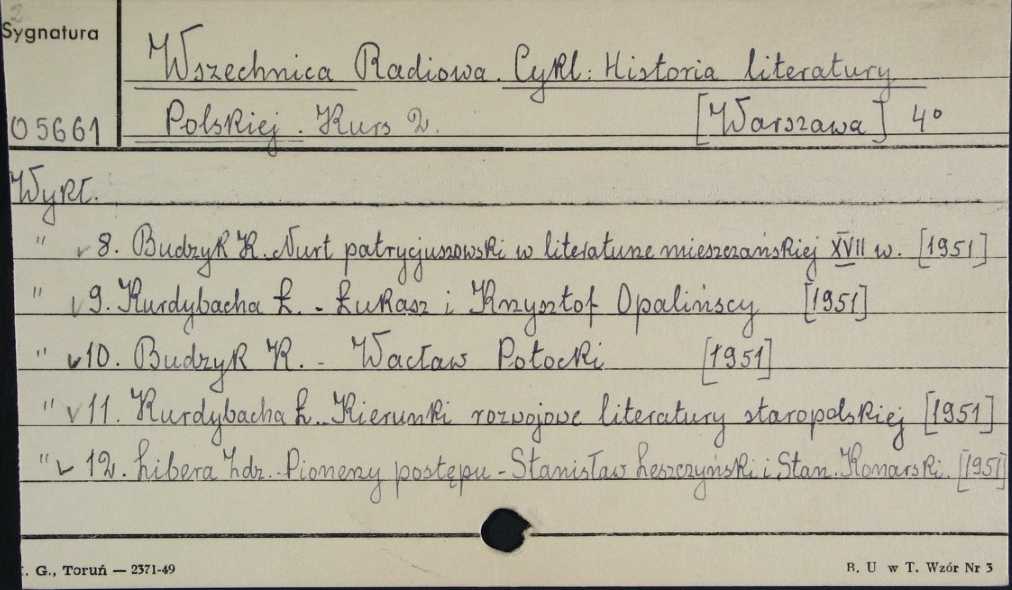 2
Sygnatura
05661
Wszechnica Radiowa. Cykl: Historia literatury
Polskiej. Kurs 2. [Warszawa] 4º
Wykł.
" ✓ 8. Budzyk K. Nurt patrycjuszowski w literaturze mieszczańskiej XVII w. [1951]
" ✓ 9. Kurdybacha Ł. - Łukasz i Krzysztof Opalińscy [1951]
" ✓ 10. Budzyk K. - Wacław Potocki [1951]
" ✓ 11. Kurdybacha Ł. Kierunki rozwojowe literatury staropolskiej [1951]
" ✓ 12. Libera Zdz. - Pionerzy postępu - Stanisław Leszczyński i Stan. Konarski. [1951]
. G., Toruń — 2371-49
B. U w T. Wzór Nr 3